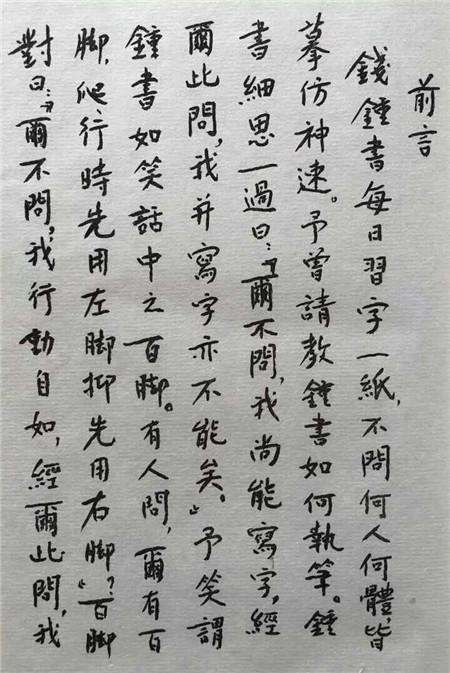 前言
錢鍾書每日習字一紙，不問何人何體，皆
摹仿神速。予曾請教鍾書如何執筆。鍾
書細思一過曰：「爾不問，我尚能寫字，經
爾此問，我并寫字亦不能矣。」予笑謂
鍾書如笑話中之百脚。有人問，爾有百
脚，爬行時先用左脚抑先用右脚？百脚
對曰：「爾不問，我行動自如，經爾此問，我